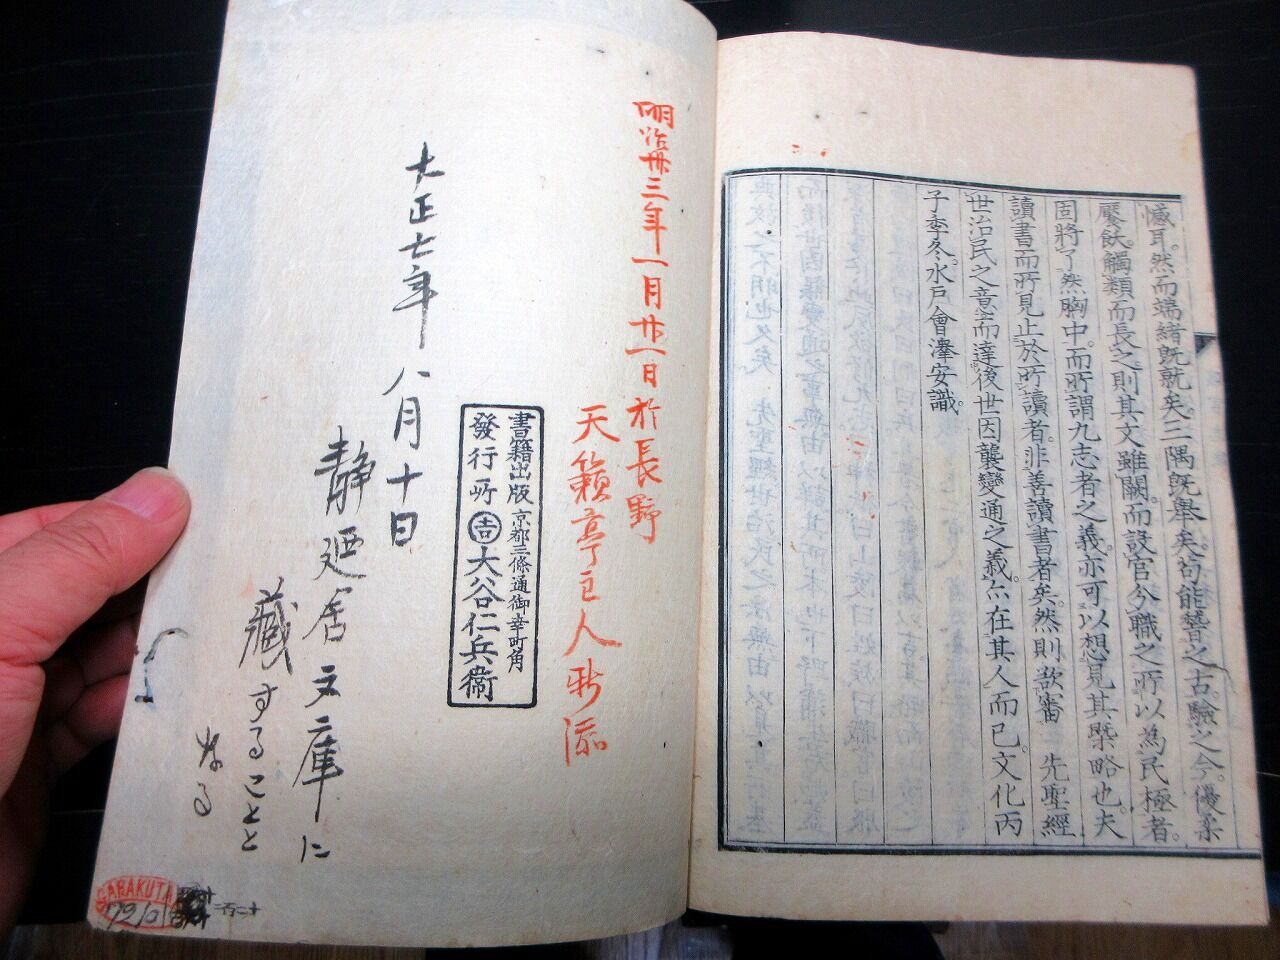 憾耳。然而端緒既就矣。三隅既舉矣。苟能替之古驗之今。優柔
饜飫。觸類而長之。則其文雖闕。而設官分職之所以為民極者。
固將了然胸中。而所謂九志者之義。亦可以想見其槩略也。夫
讀書而所見止於所讀者。非善讀書者矣。然則欲審 先聖經
世治民之意。而達後世因襲變通之義。亦在其人而已。文化丙
子季冬。水戶會澤安識。
明治卅三年一月廿一日於長野
天籟亭主人珎
書籍出版 京都三條通御幸町角
發行所 吉 大谷仁兵衞
大正七年八月十日
靜廼舍文庫に
藏することと
なる
GARAKUTA